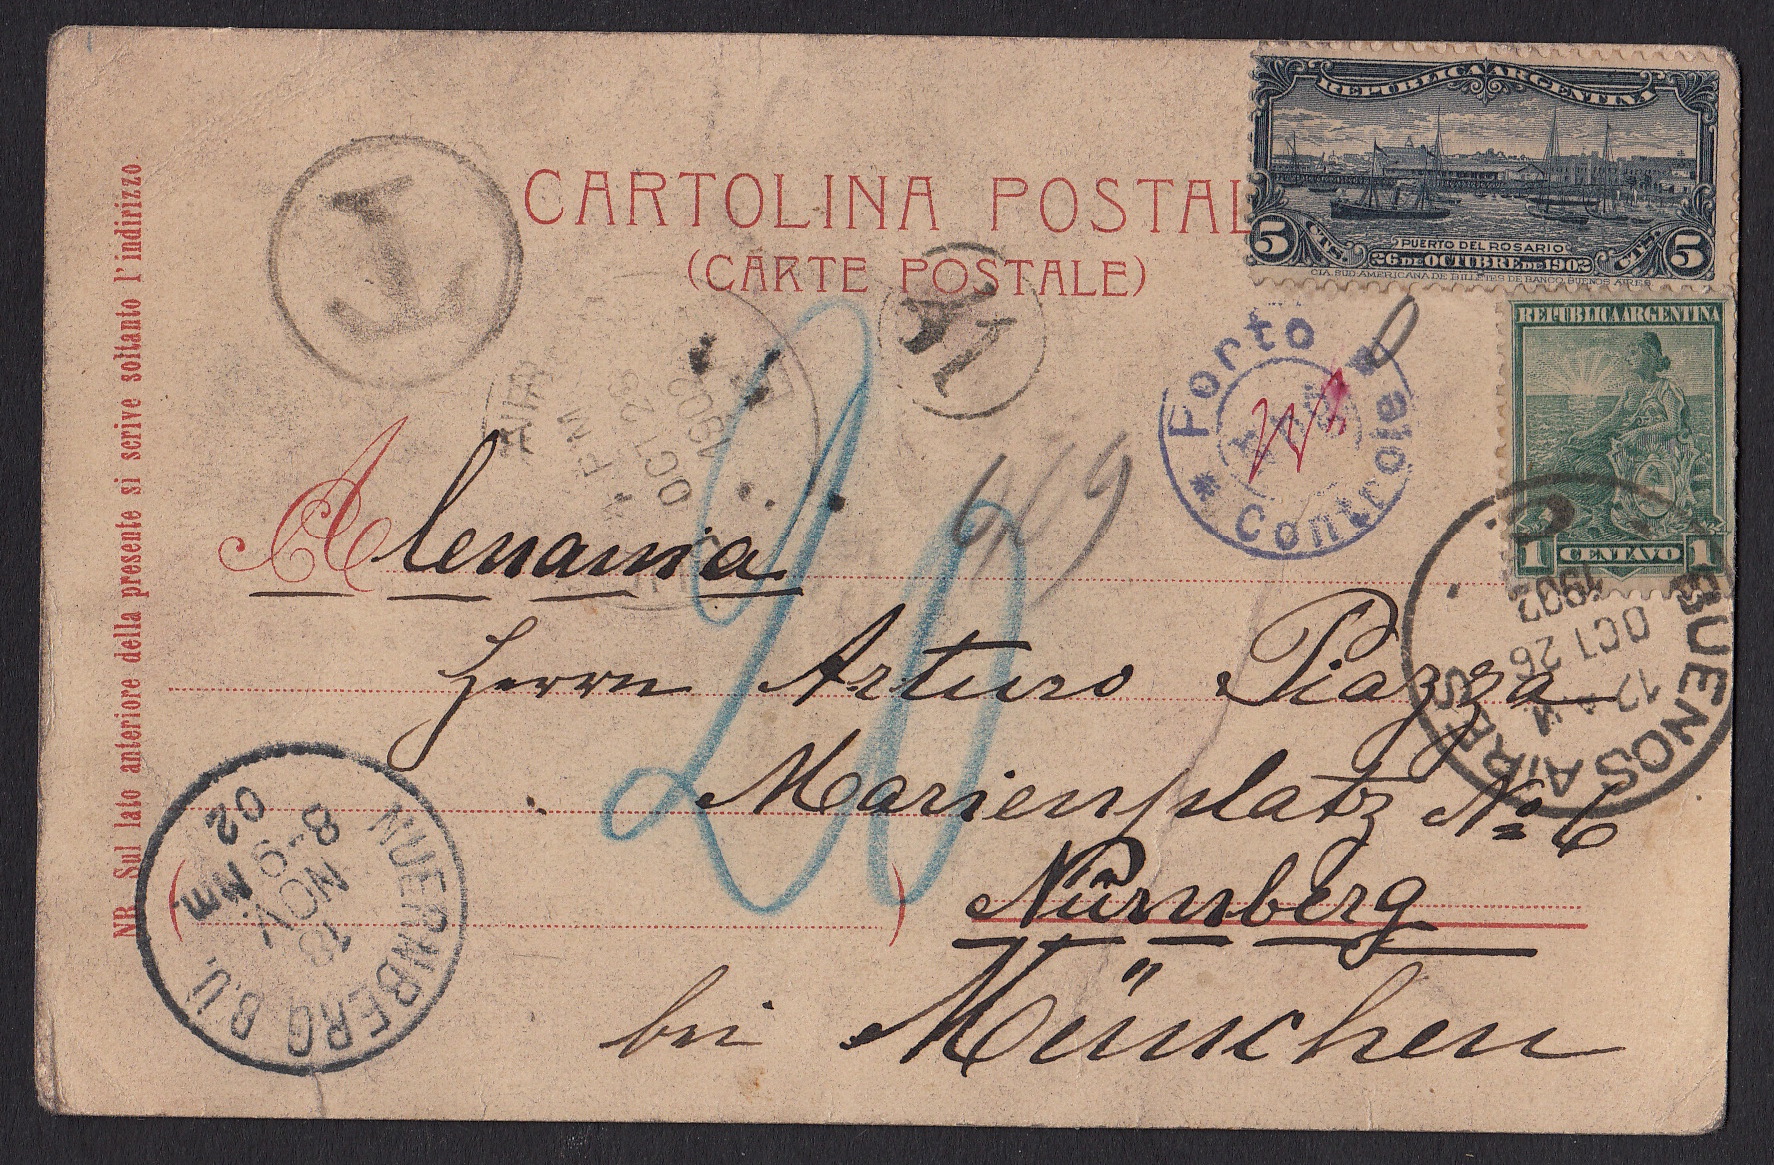 CARTOLINA POSTAL
(CARTE POSTALE)
NB Sul lato anteriore della presente si serive soltanto l'indirizzo
REPUBLICA ARGENTINA
PUERTO DEL ROSARIO
26 DE OCTUBRE DE 1902
5 CTS. CTS. 5
CIA. SUD. AMERICANA DE BILLETES DE BANCO BUENOS AIRES
REPUBLICA ARGENTINA
1 CENTAVO 1
T
Porto
Controle
PM
OCT 26
1902
BUENOS AIRES
12 M
OCT 26
1902
20
Alemania
Herrn Arturo Piazza
Marienplatz No 6
Nürnberg
bei München
NUERNBERG B.U.
18
NOV.
8-9 Nm.
02